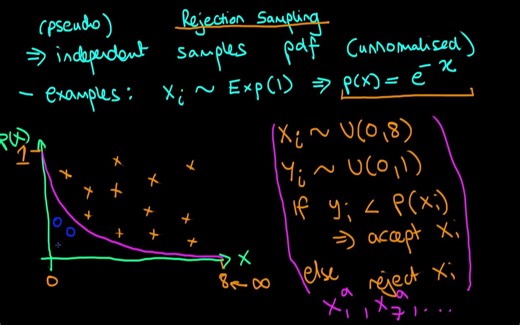 Rejection Sampling
(pseudo)
⇒ independent samples pdf (unnormalised)
- examples: Xi ~ Exp(1) ⇒ p(x) = e^-x
P(X)
1
0
8 ← ∞
X
Xi ~ U(0,8)
yi ~ U(0,1)
If yi < P(Xi)
⇒ accept Xi
else reject Xi
X1^a, X7^a, ...